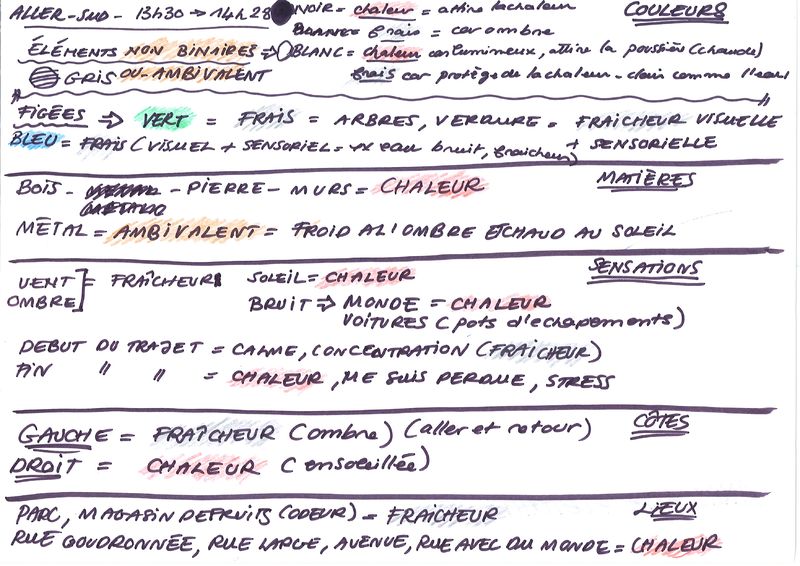 ALLER-SUD - 13h30 → 14h28
NOIR = chaleur = attire la chaleur
COULEURS
BLANC = frais = car ombre
ÉLÉMENTS NON BINAIRES ⇒ BLANC = chaleur car lumineux, attire la poussière (chaude)
GRIS OU AMBIVALENT
frais car protège de la chaleur - clair comme l'eau
FIGÉES ⇒ VERT = FRAIS = ARBRES, VERDURE = FRAICHEUR VISUELLE
+ SENSORIELLE
BLEU = FRAIS (VISUEL + SENSORIEL = eau bruit, fraicheur)
BOIS - PIERRE - MURS = CHALEUR
MATIÈRES
MÉTAL = AMBIVALENT = FROID A L'OMBRE ET CHAUD AU SOLEIL
SENSATIONS
VENT
OMBRE
= FRAÎCHEUR
SOLEIL = CHALEUR
BRUIT ⇒ MONDE = CHALEUR
VOITURES (pots d'echapements)
DEBUT DU TRAJET = CALME, CONCENTRATION (FRAICHEUR)
FIN " " = CHALEUR, ME SUIS PERDUE, STRESS
CÔTÉS
GAUCHE = FRAÎCHEUR (ombre) (aller et retour)
DROIT = CHALEUR (ensoleillée)
LIEUX
PARC, MAGASIN DE FRUITS (ODEUR) = FRAICHEUR
RUE GOUDRONNÉE, RUE LARGE, AVENUE, RUE AVEC DU MONDE = CHALEUR